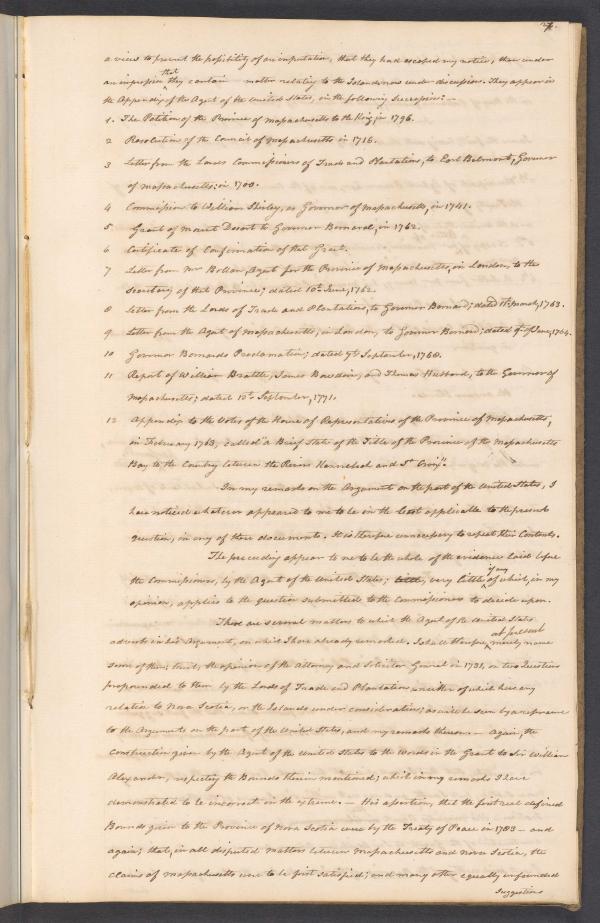 a view to prevent the possibility of an imputation, that they had escaped my notice, than under
an impression that they contain matter relating to the Islands now under discussion. They appear in
the Appendix of the Agent of the United States, in the following Succession: —
1. The Petition of the Province of Massachusetts to the King, in 1796.
2 Resolution of the Council of Massachusetts in 1716.
3 Letter from the Lords Commissioners of Trade and Plantations, to Earl Belmont, Governor
of Massachusetts; in 1700.
4 Commission to William Shirley, as Governor of Massachusetts, in 1741.
5 Grant of Mount Desert to Governor Bernard, in 1762.
6 Certificate of Confirmation of that Grant.
7 Letter from Mr Bollan, Agent for the Province of Massachusetts, in London, to the
Secretary of that Province; dated 10th June, 1762.
8 Letter from the Lords of Trade and Plantations, to Governor Bernard; dated 11th March, 1763.
9 Letter from the Agent of Massachusetts, in London, to Governor Bernard; dated 9th of June, 1764.
10 Governor Bernards Proclamation; dated 9th September, 1760.
11 Report of William Brattle, James Bowdoin, and Thomas Hubbard, to the Governor of
Massachusetts; dated 12th September, 1771.
12 Appendix to the Votes of the House of Representatives of the Province of Massachusetts,
in February 1763, called "a Brief State of the Title of the Province of the Massachusetts
Bay to the Country between the Rivers Kennebeck and St Croix".
In my remarks on the Argument on the part of the United States, I
have noticed whatever appeared to me to be in the least applicable to the present
question, in any of these documents. It is therefore unnecessary to repeat their Contents.
The preceding appear to me to be the whole of the evidence laid before
the Commissioners, by the Agent of the United States; very little if any of which, in my
opinion, applies to the question submitted to the Commissioners to decide upon.
There are several matters to which the Agent of the United States
adverts in his Argument, on which I have already remarked, I shall therefore, at present merely name
some of them; to wit, the opinion of the Attorney and Solicitor General in 1731, on two Questions
propounded to them by the Lords of Trade and Plantations neither of which have any
relation to Nova Scotia, or the Islands under consideration; as will be seen by a reference
to the Arguments on the part of the United States, and my remarks thereon. — Again, the
Construction given by the Agent of the United States to the words in the Grant to Sir William
Alexander, respecting the Bounds therein mentioned; which in my remarks I have
demonstrated to be incorrect in the extreme. — His assertion, that the first real defined
Bounds given to the Province of Nova Scotia were by the Treaty of Peace in 1783 — and
again; that, in all disputed matters between Massachusetts and Nova Scotia, the
claims of Massachusetts were to be first satisfied; and many other equally unfounded
Suggestions